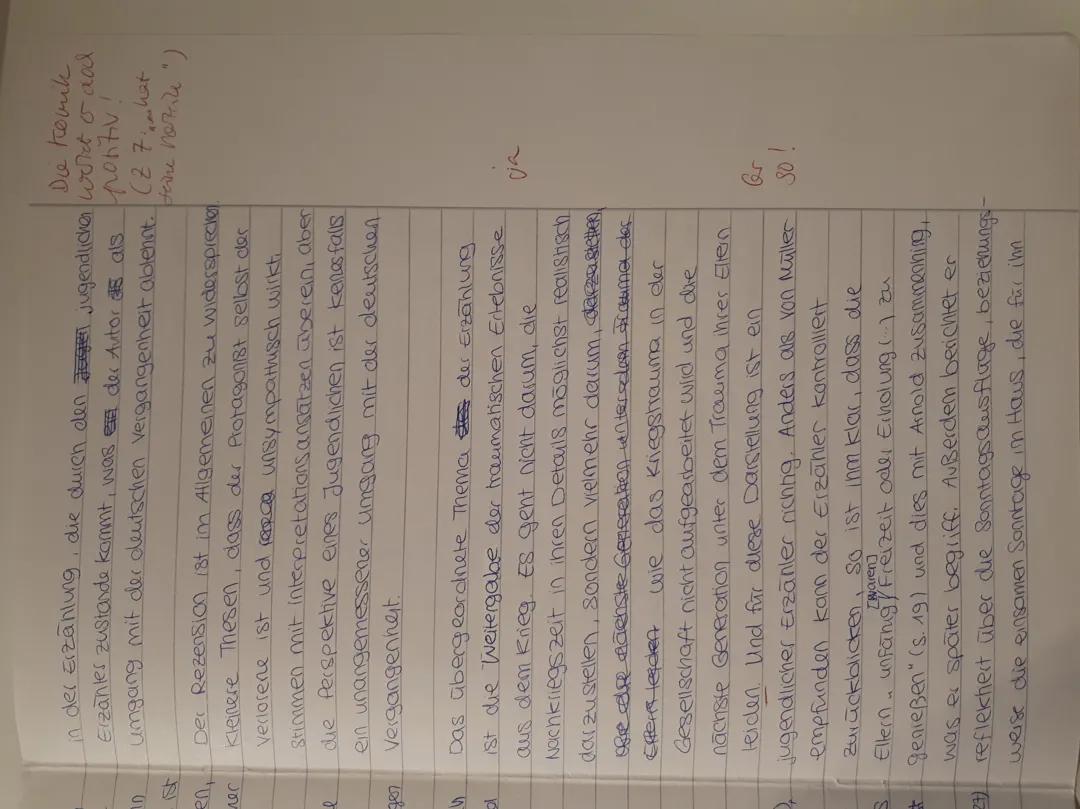 in der Erzählung, die durch den jugendlichen
Erzähler zustande kommt, was der Autor als
Umgang mit der deutschen Vergangenheit ablehnt.
Der Rezension ist im Allgemeinen zu widersprechen.
Kleinere Thesen, dass der Protagonist selbst der
Verlorene ist und unsympathisch wirkt
stimmen mit Interpretationsansätzen überein, aber
die Perspektive eines Jugendlichen ist keinesfalls
ein unangemessener Umgang mit der deutschen
Vergangenheit.
Das übergeordnete Thema der Erzählung
ist die Weitergabe der traumatischen Erlebnisse
aus dem Krieg. Es geht nicht darum, die
Nachkriegszeit in ihren Details möglichst realistisch
darzustellen, sondern vielmehr darum,
wie das Kriegstrauma in der
Gesellschaft nicht aufgearbeitet wird und die
nächste Generation unter dem Trauma ihrer Eltern
leiden. Und für diese Darstellung ist ein
jugendlicher Erzähler nötig. Anders als von Müller
empfunden kann der Erzähler kontrolliert
zurückblicken, so ist ihm klar, dass die
Eltern „unfähig [waren] Freizeit oder Erholung (...) zu
genießen" (S. 19) und dies mit Arnold zusammenhing,
was er später begriff. Außerdem berichtet er
reflektiert über die Sonntagsausflüge, beziehungs-
weise die einsamen Sonntage im Haus, die für ihn
Die Komik
wirkt
positiv!
(z
so!
ist
en,